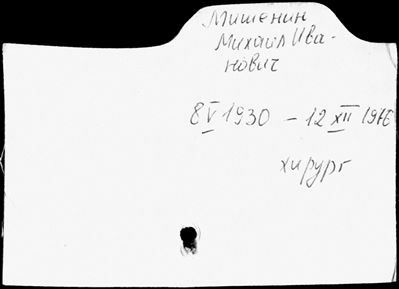 Мишенин
Михаил Ива-
нович
8 V 1930 – 12 XII 1976
хирург